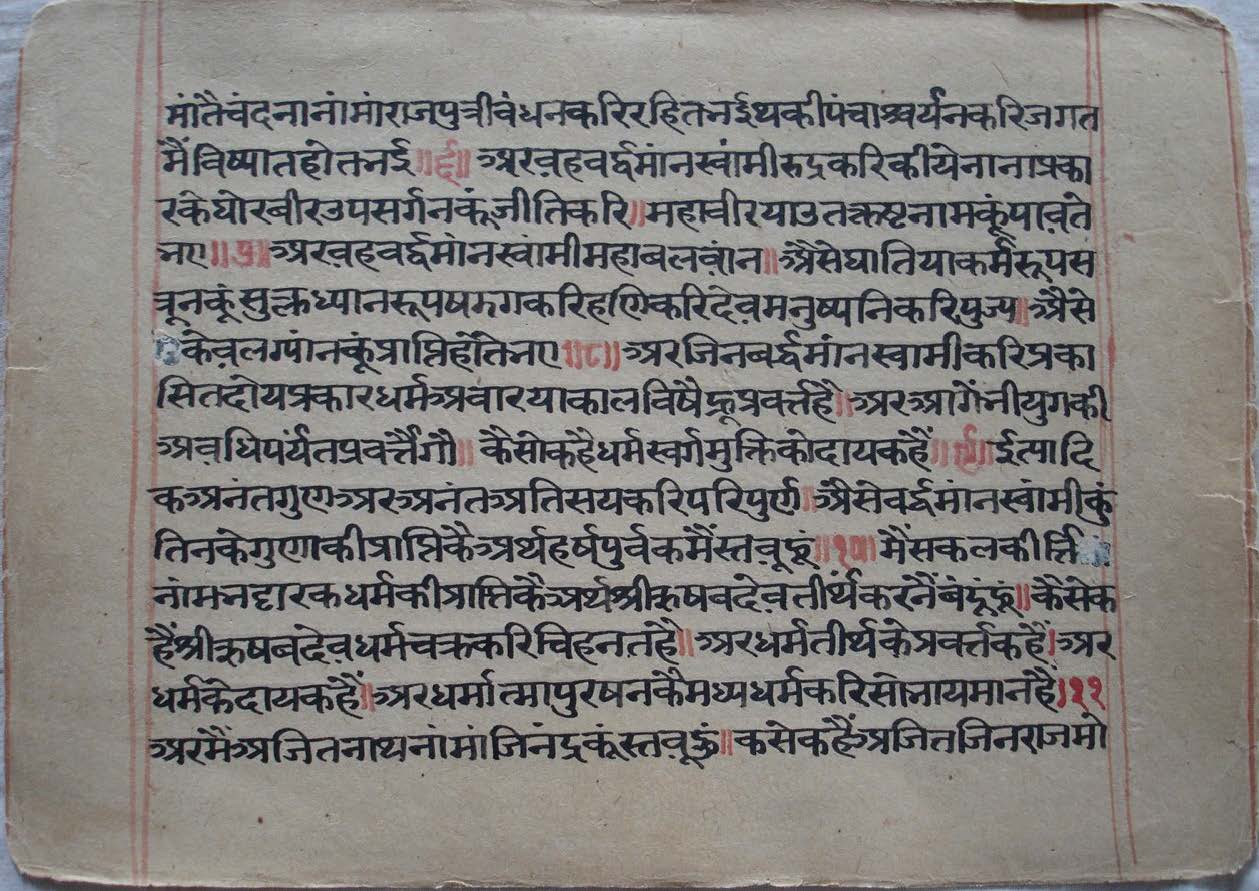 मांतैचंदनानांमांराजपुत्रीबंधनकरिरहितभईथकीपंचाश्चर्यनकरिजगत
मैंविष्यातहोतभई॥६॥अरव़हवर्द्धमांनस्वांमीरुद्रकरिकीयेनानाप्रका
रकेघोरबीरउपसर्गनकूंजीतिकरि॥महावीरयाउतकृष्टनामकूंपाव़ते
भए॥७॥अरव़हवर्द्धमांनस्वांमीमहाबलव़ांन॥अैसेघातियाकर्मरूपस
त्रूनकूंसुक्लध्यानरूपषडगकरिहणिकरिदेव़मनुष्यनिकरिपुज्य॥अैसे
केव़लग्यांनकूंप्राप्तिहोतेभए॥८॥अरजिनबर्द्धमांनस्वामीकरिप्रका
सितदोयप्रकारधर्मअवारयाकालविषैहूप्रवर्त्तहै॥अरआगेंभीयुगकी
अव़धिपर्यंतप्रवर्त्तैगौ॥कैसोकहैधर्मस्वर्गमुक्तिकोदायकहैं॥९॥ईत्यादि
कअनंतगुणअरुअनंतअतिसयकरिपरिपुर्ण॥अैसेवर्द्धमांनस्वांमीकुं
तिनकेगुणाकीप्राप्तिकैअर्थहर्षपुर्वकमैंस्तव़ूहूं॥१०॥मैंसकलकीर्त्ति
नांमभट्टारकधर्मकीप्राप्तिकैअर्थश्रीऋषबदेव़तीर्थंकरनैंबंदूंहूं॥कैसेक
हैंश्रीऋषबदेव़धर्मचक्रकरिचिहनतहै॥अरधर्मतीर्थकेप्रवर्त्तकहैं।अर
धर्मकेदायकहैं॥अरधर्मात्मापुरषनकैमध्यधर्मकरिसोभायमानहै।११
अरमैंअजितनाथनांमांजिनंद्रकूंस्तव़ूहूं॥कसेकहैंअजितजिनराजमो